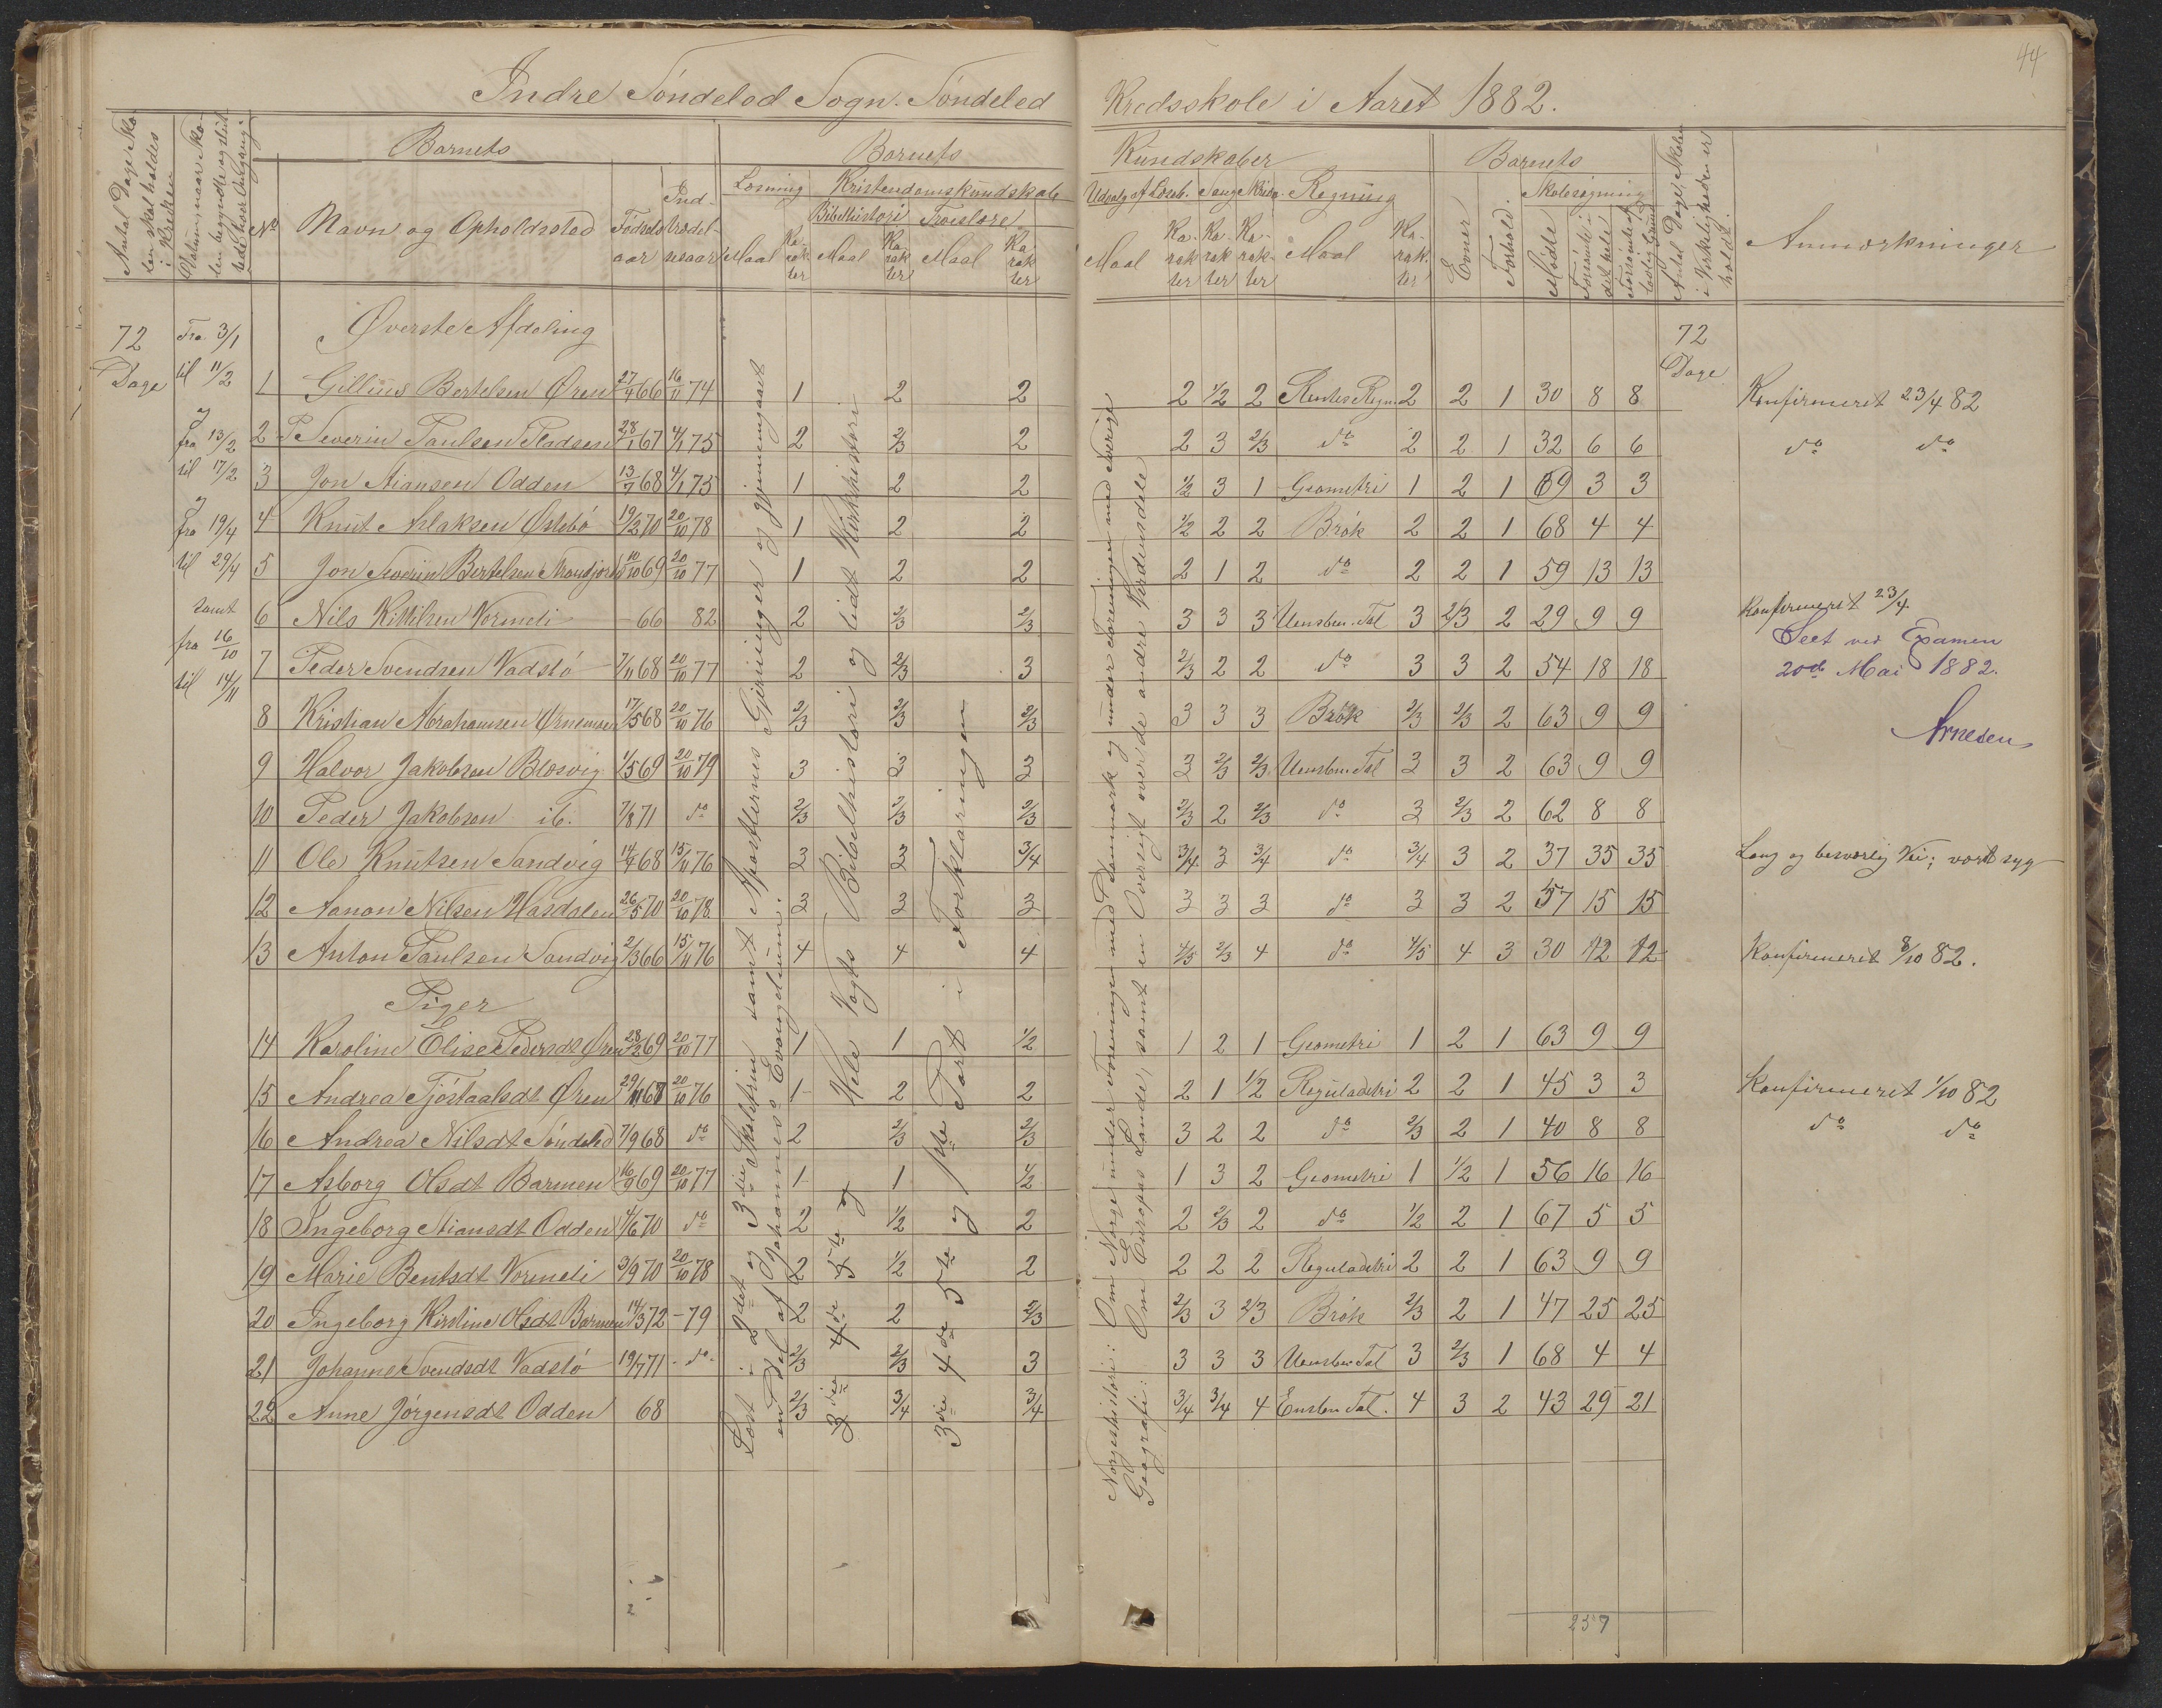 44
Indre Söndelöd Sogn. Söndeled Kredsskole i Aaret 1882.
Antal Dage Skolen skal holdes i Kredsen
Datum, naar Skolen begyndte og sluttede hver Omgang.
Barnets
Barnets Kundskaber
Barnets
No
Navn og Opholdssted
Fødselsaar
Indtrædelsesaar
Læsning
Kristendomskundskab
Bibelhistori
Troeslære
Maal
Karakter
Maal
Karakter
Maal
Karakter
Udvalg af Læseb.
Sang
Skrivn.
Regning
Maal
Karakter
Karakter
Karakter
Maal
Karakter
Evner
Forhold.
Skolesøgning
Mødte
Forsömte i det hele
Forsömte af lovlig Grund
Antal Dage, Skolen i Virkeligheden er holdt.
Anmærkninger
72 Dage
Fra 3/1
til 11/2
fra 13/2
til 17/2
fra 19/4
til 29/4
samt
fra 16/10
til 14/11
Øverste Afdeling
72 Dage
1 Gillius Bertelsen Øren 27/4 66 16/11 74 1 2 2 2 1/2 2 Rentes Regn. 2 2 1 30 8 8 Konfirmeret 23/4 82
2 P Severin Paulsen Pladsen 28/1 67 4/1 75 2 2/3 2 2 3 2/3 do 2 2 1 32 6 6 do do
3 Jon Stiansen Odden 13/7 68 4/1 75 1 2 2 1/2 3 1 Geometri 1 2 1 69 3 3
4 Knut Aslaksen Østebö 19/2 70 20/10 78 1 2 2 1/2 2 2 Brök 2 2 1 68 4 4
5 Jon Severin Bertelsen 10/10 69 20/10 77 1 2 2 2 1 2 do 2 2 1 59 13 13
6 Nils Kittilsen Vormeli 66 82 2 2/3 2/3 3 3 3 Uensben. Tal 3 2/3 2 29 9 9 Konfirmeret 23/4
7 Peder Svendsen Vadstö 7/11 68 20/10 77 2 2/3 3 2/3 2 2 do 3 3 2 54 18 18
Seet ved Examen
20de Mai 1882.
Arnesen
8 Kristian Abrahamsen 17/5 68 20/10 76 2/3 2/3 2/3 3 3 3 Brök 2/3 2/3 2 63 9 9
9 Halvor Jakobsen Blæsvig 1/5 69 20/10 79 3 3 3 3 2/3 2/3 Uensben Tal 3 3 2 63 9 9
10 Peder Jakobsen ib. 7/8 71 do 2/3 2/3 2/3 2/3 2 2/3 do 3 2/3 2 62 8 8
11 Ole Knutsen Sandvig 14/4 68 15/11 76 3 3 3/4 3/4 3 3/4 do 3/4 3 2 37 35 35 Lang og besværlig Vei; vært syg
12 Aanon Nilsen Hasdalen 26/5 70 20/10 78 3 3 3 3 3 3 do 3 3 2 57 15 15
13 Anton Paulsen Sandvig 2/3 66 15/11 76 4 4 4 4/5 2/3 4 do 4/5 4 3 30 12 12 Konfirmeret 8/10 82.
Piger
14 Karoline Elise Pedersdt Øren 28/2 69 20/10 77 1 1 1/2 1 2 1 Geometri 1 2 1 63 9 9
15 Andrea Tjöstaalsdt Øren 29/11 67 20/10 76 1 2 2 2 1 1/2 Reguladetri 2 2 1 45 3 3 Konfirmeret 1/10 82
16 Andrea Nilsdt Söndeled 7/9 68 do 2 2/3 2/3 3 2 2 do 2/3 2 1 40 8 8 do do
17 Asborg Olsdt Barmen 16/9 69 20/10 77 1 1 1/2 1 3 2 Geometri 1 1/2 1 56 16 16
18 Ingeborg Stiansdt Odden 4/6 70 do 2 1/2 2 2 2/3 2 do 1/2 2 1 67 5 5
19 Marie Bentsdt Vormeli 3/9 70 20/10 78 2 1/2 2 2 2 2 Reguladetri 2 2 1 63 9 9
20 Ingeborg Kirstine Olsdt Barmen 14/3 72 - 79 2 2 2/3 2/3 3 2/3 Brök 2/3 2 1 47 25 25
21 Johanne Svendsdt Vadstö 19/7 71 - do - 2/3 2/3 3 3 3 3 Uensben Tal 3 2/3 1 68 4 4
22 Anne Jörgensdt Odden 68 2/3 3/4 3/4 3/4 3/4 4 Ensben Tal. 4 3 2 43 29 21
Læst i 2det og 3die Skoletrin samt Apostlernes Gjerninger og gjennemgaaet
en Del af Johannes's Evangelium.
3die 4de 5te og Hele Vogts Bibelhistori og lidt Kirkehistori
3die 4de 5te og 1ste Part i Forklaringen
Norgeshistori: Om Norge under Foreningen med Danmark og under Foreningen med Sverige
Geografi: Om Europas Lande, samt en Oversigt over de andre Verdensdele
237